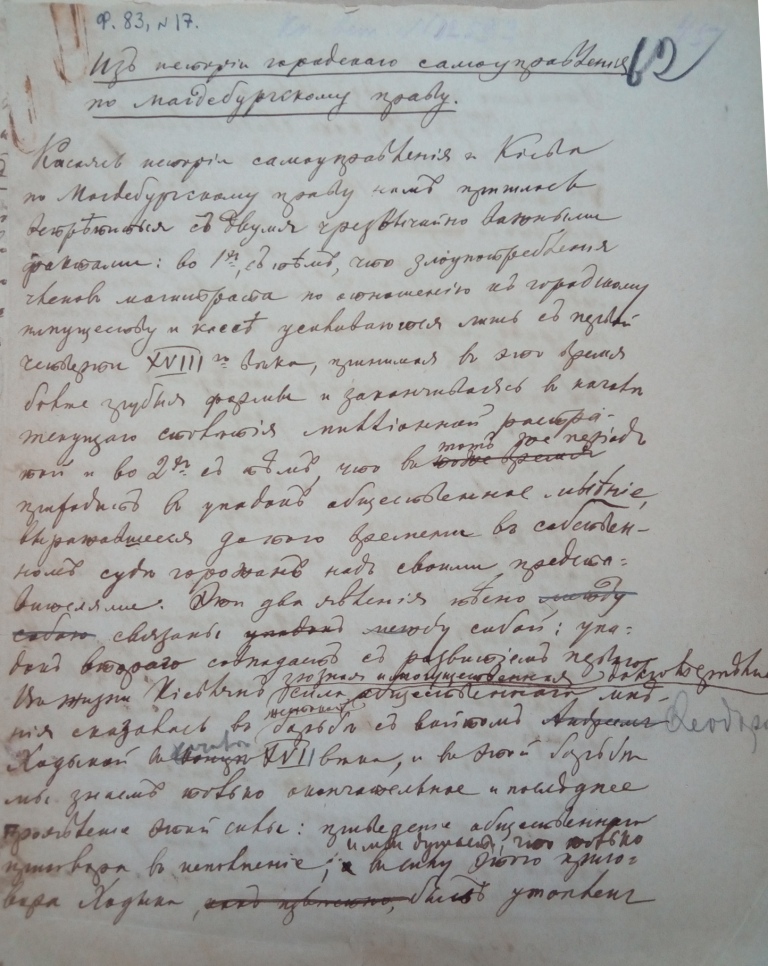 Ф. 83, № 17.
62
Изъ исторіи городского самоуправленія
по Магдебургскому праву.
Касаясь исторіи самоуправленія г. Кіева
по Магдебургскому праву намъ пришлось
встрѣтиться съ двумя чрезвычайно важными
фактами: во 1хъ, съ тѣмъ, что злоупотребленія
членовъ магистрата по отношенію къ городскому
имуществу и кассѣ усиливаются лишь съ первой
четверти XVIII го вѣка, принимая въ это время
болѣе грубыя формы и заканчиваясь въ началѣ
текущаго столѣтія милліонной растра-
той и во 2хъ съ тѣмъ, что въ тотъ же періодъ
приходитъ въ упадокъ общественное мнѣніе,
выражавшееся до того времени въ собствен-
номъ судѣ горожанъ надъ своими предста-
вителями. Эти два явленія тѣсно между
собою связаны между собой: упа-
докъ второго совпадаетъ съ развитіемъ перваго
Въ жизни Кіевлянъ сила общественнаго мнѣ-
нія сказалась въ борьбѣ съ войтомъ Андреемъ
Ходыкой въ началѣ XVII вѣка, и въ этой борьбѣ
мы знаемъ только окончательное и послѣднее
проявленіе этой силы: приведеніе общественнаго
приговора въ исполненіе, въ силу этого приго-
вора Ходыка, былъ утопленъ